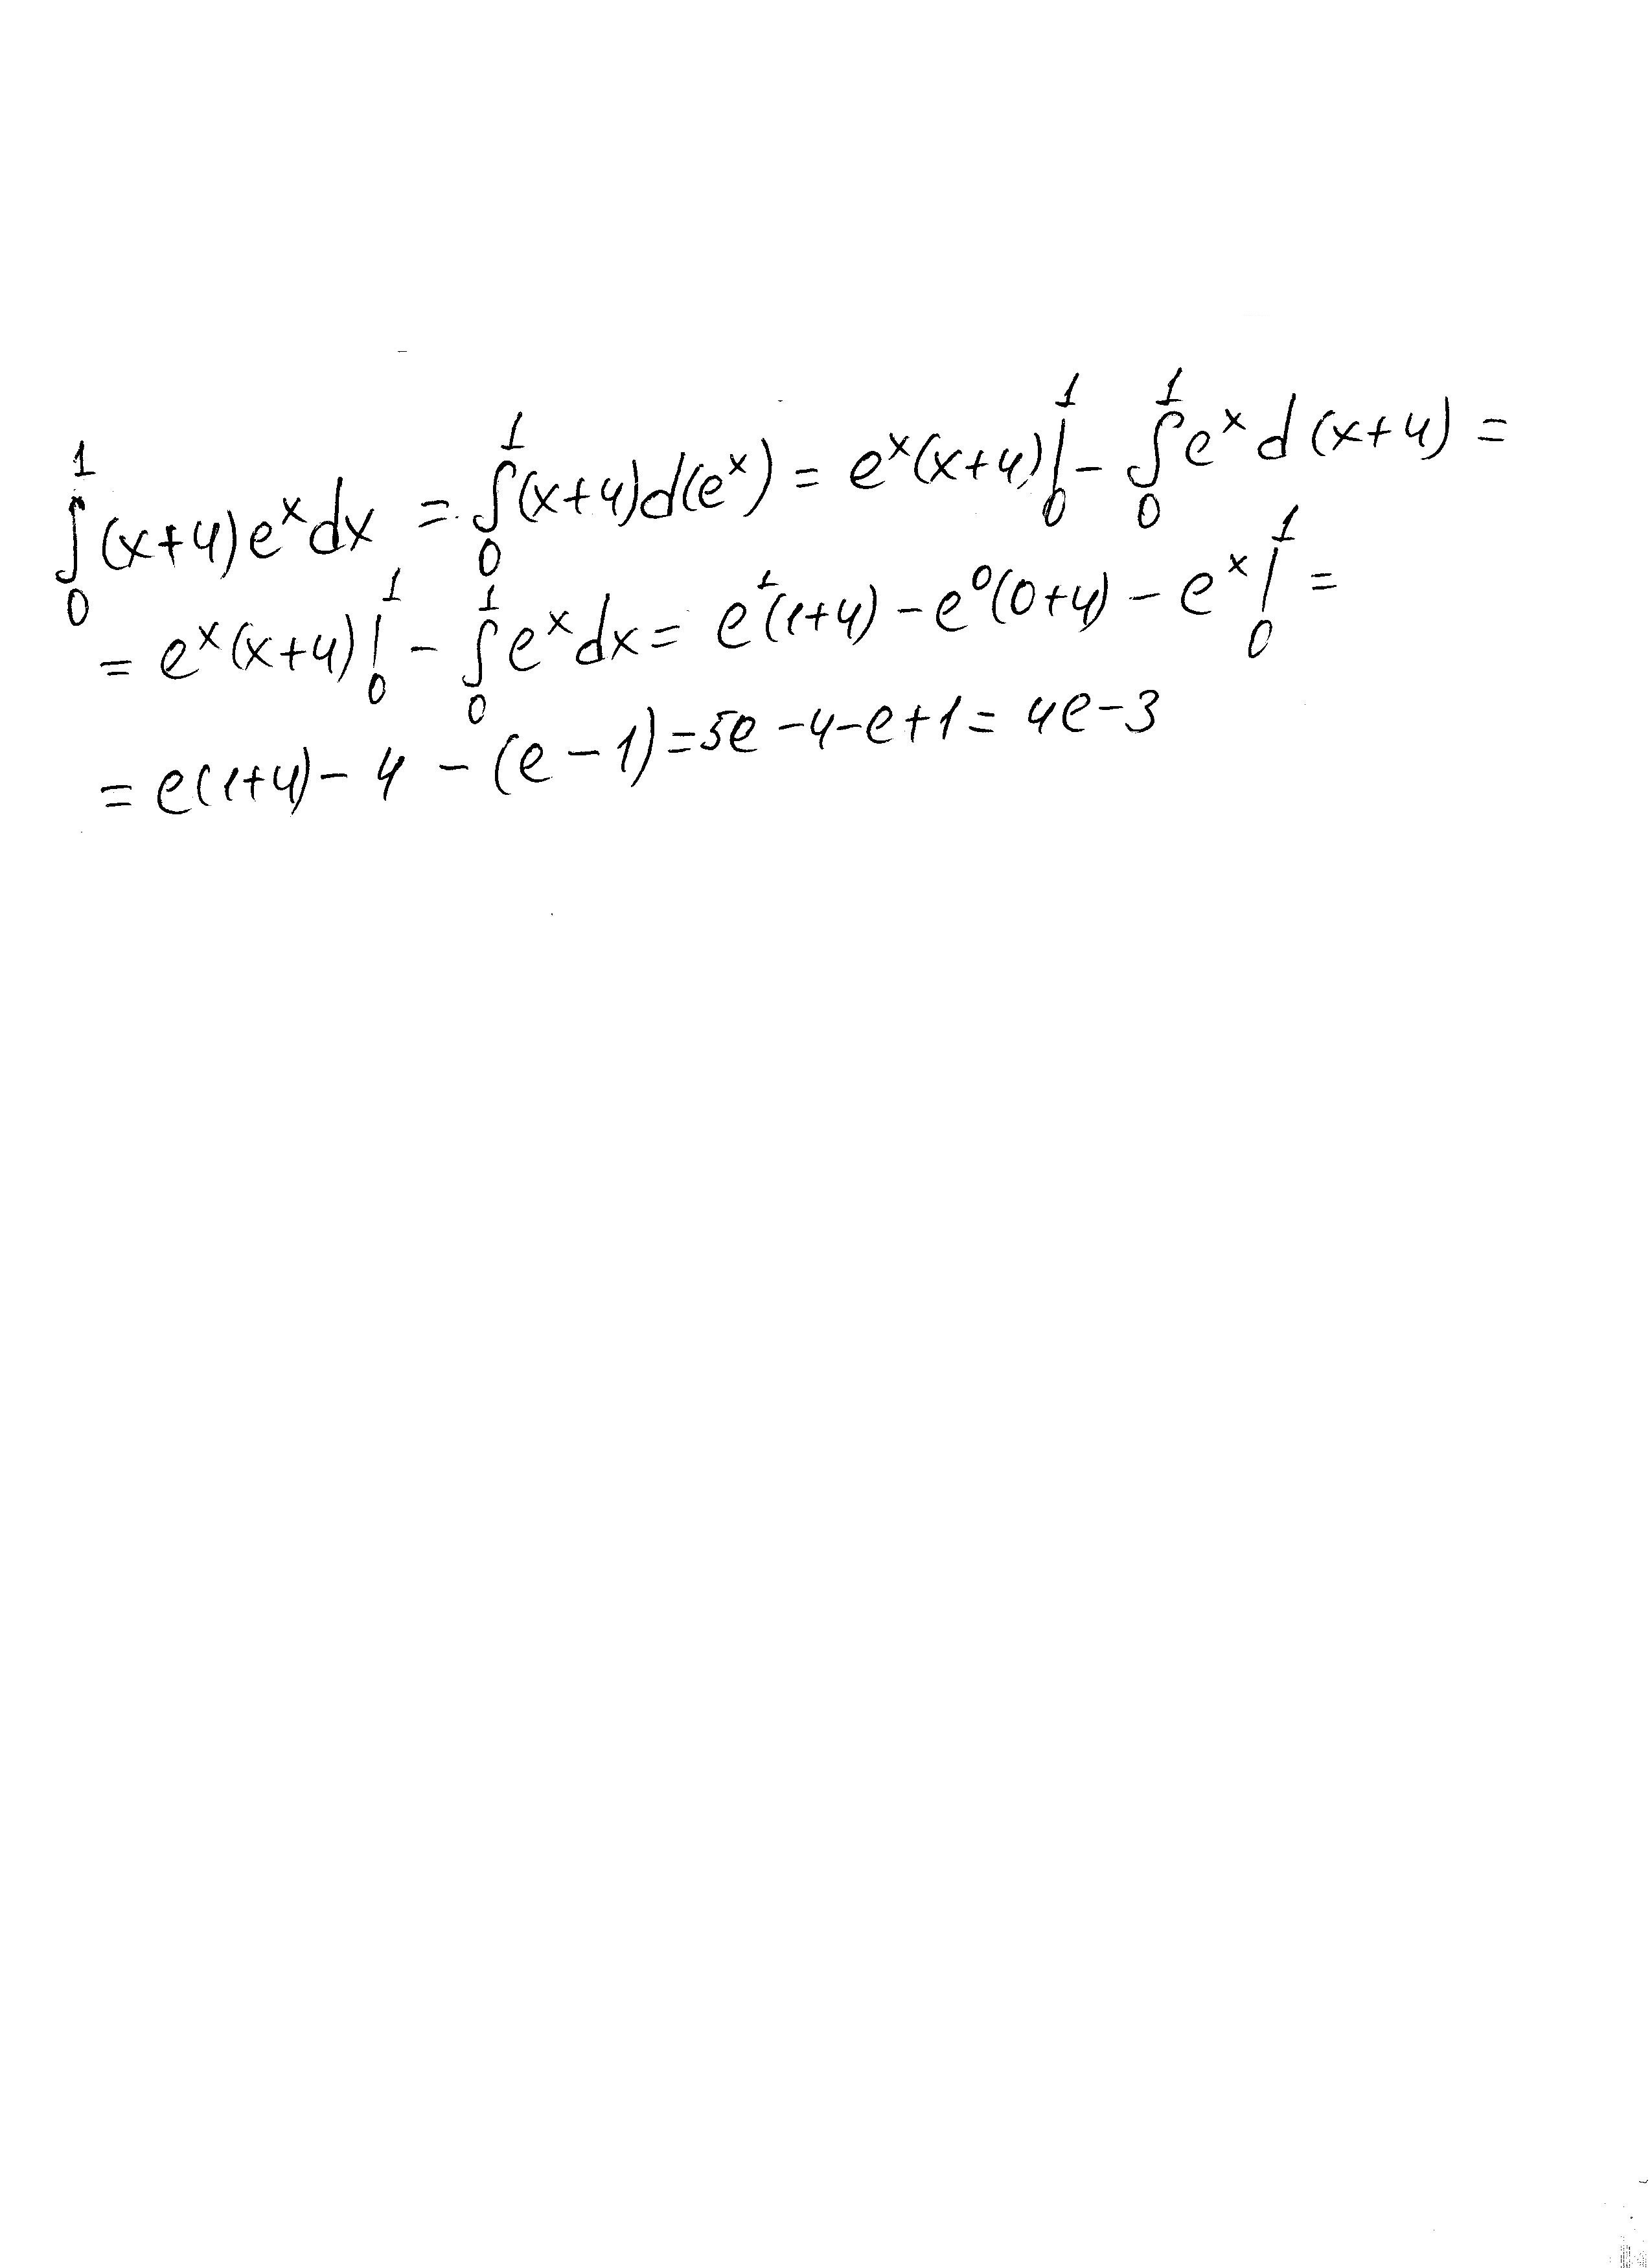 ∫₀¹ (x+4)eˣdx = ∫₀¹ (x+4)d(eˣ) = eˣ(x+4)|₀¹ - ∫₀¹ eˣd(x+4) =
= eˣ(x+4)|₀¹ - ∫₀¹ eˣdx = e¹(1+4) - e⁰(0+4) - eˣ|₀¹ =
= e(1+4) - 4 - (e - 1) = 5e - 4 - e + 1 = 4e - 3